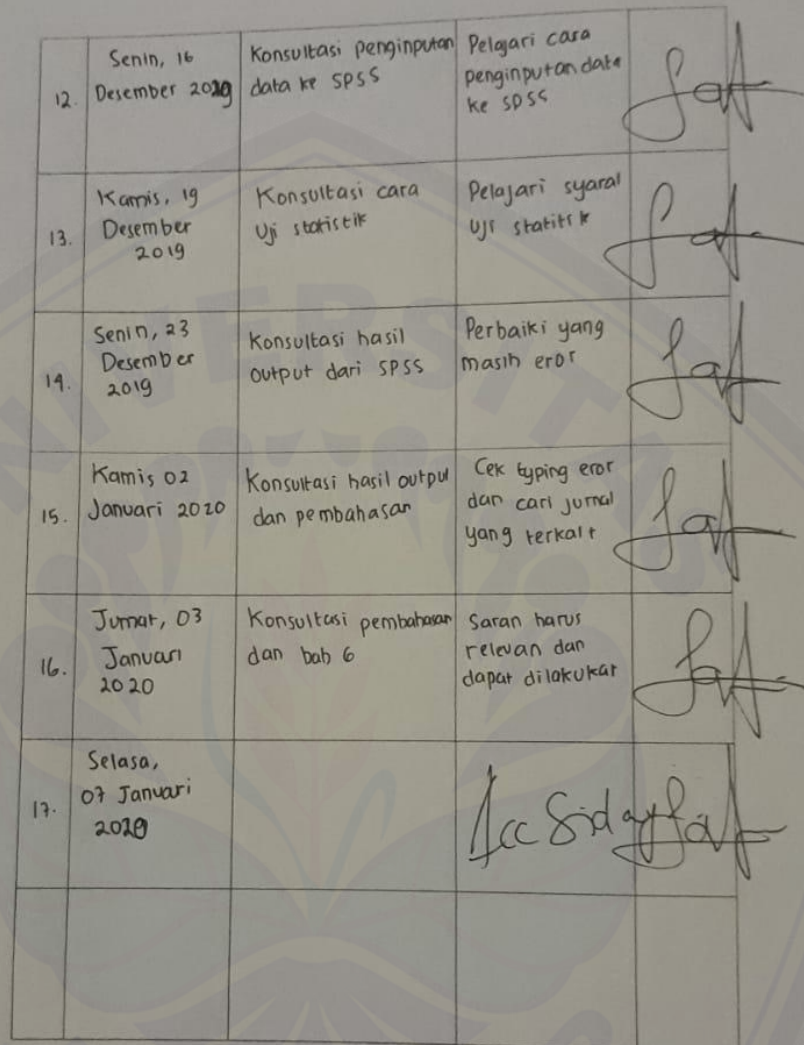 12.
Senin, 16
Desember 2019
Konsultasi penginputan
data ke SPSS
Pelajari cara
penginputan data
ke SPSS
13.
Kamis, 19
Desember
2019
Konsultasi cara
Uji statistik
Pelajari syarat
Uji statitsk
14.
Senin, 23
Desember
2019
Konsultasi hasil
output dari SPSS
Perbaiki yang
masih eror
15.
Kamis 02
Januari 2020
Konsultasi hasil output
dan pembahasan
Cek typing eror
dan cari jurnal
yang terkait
16.
Jumat, 03
Januari
2020
Konsultasi pembahasan
dan bab 6
Saran harus
relevan dan
dapat dilakukan
17.
Selasa,
07 Januari
2020
Acc Sidang
UNIVERSITAS